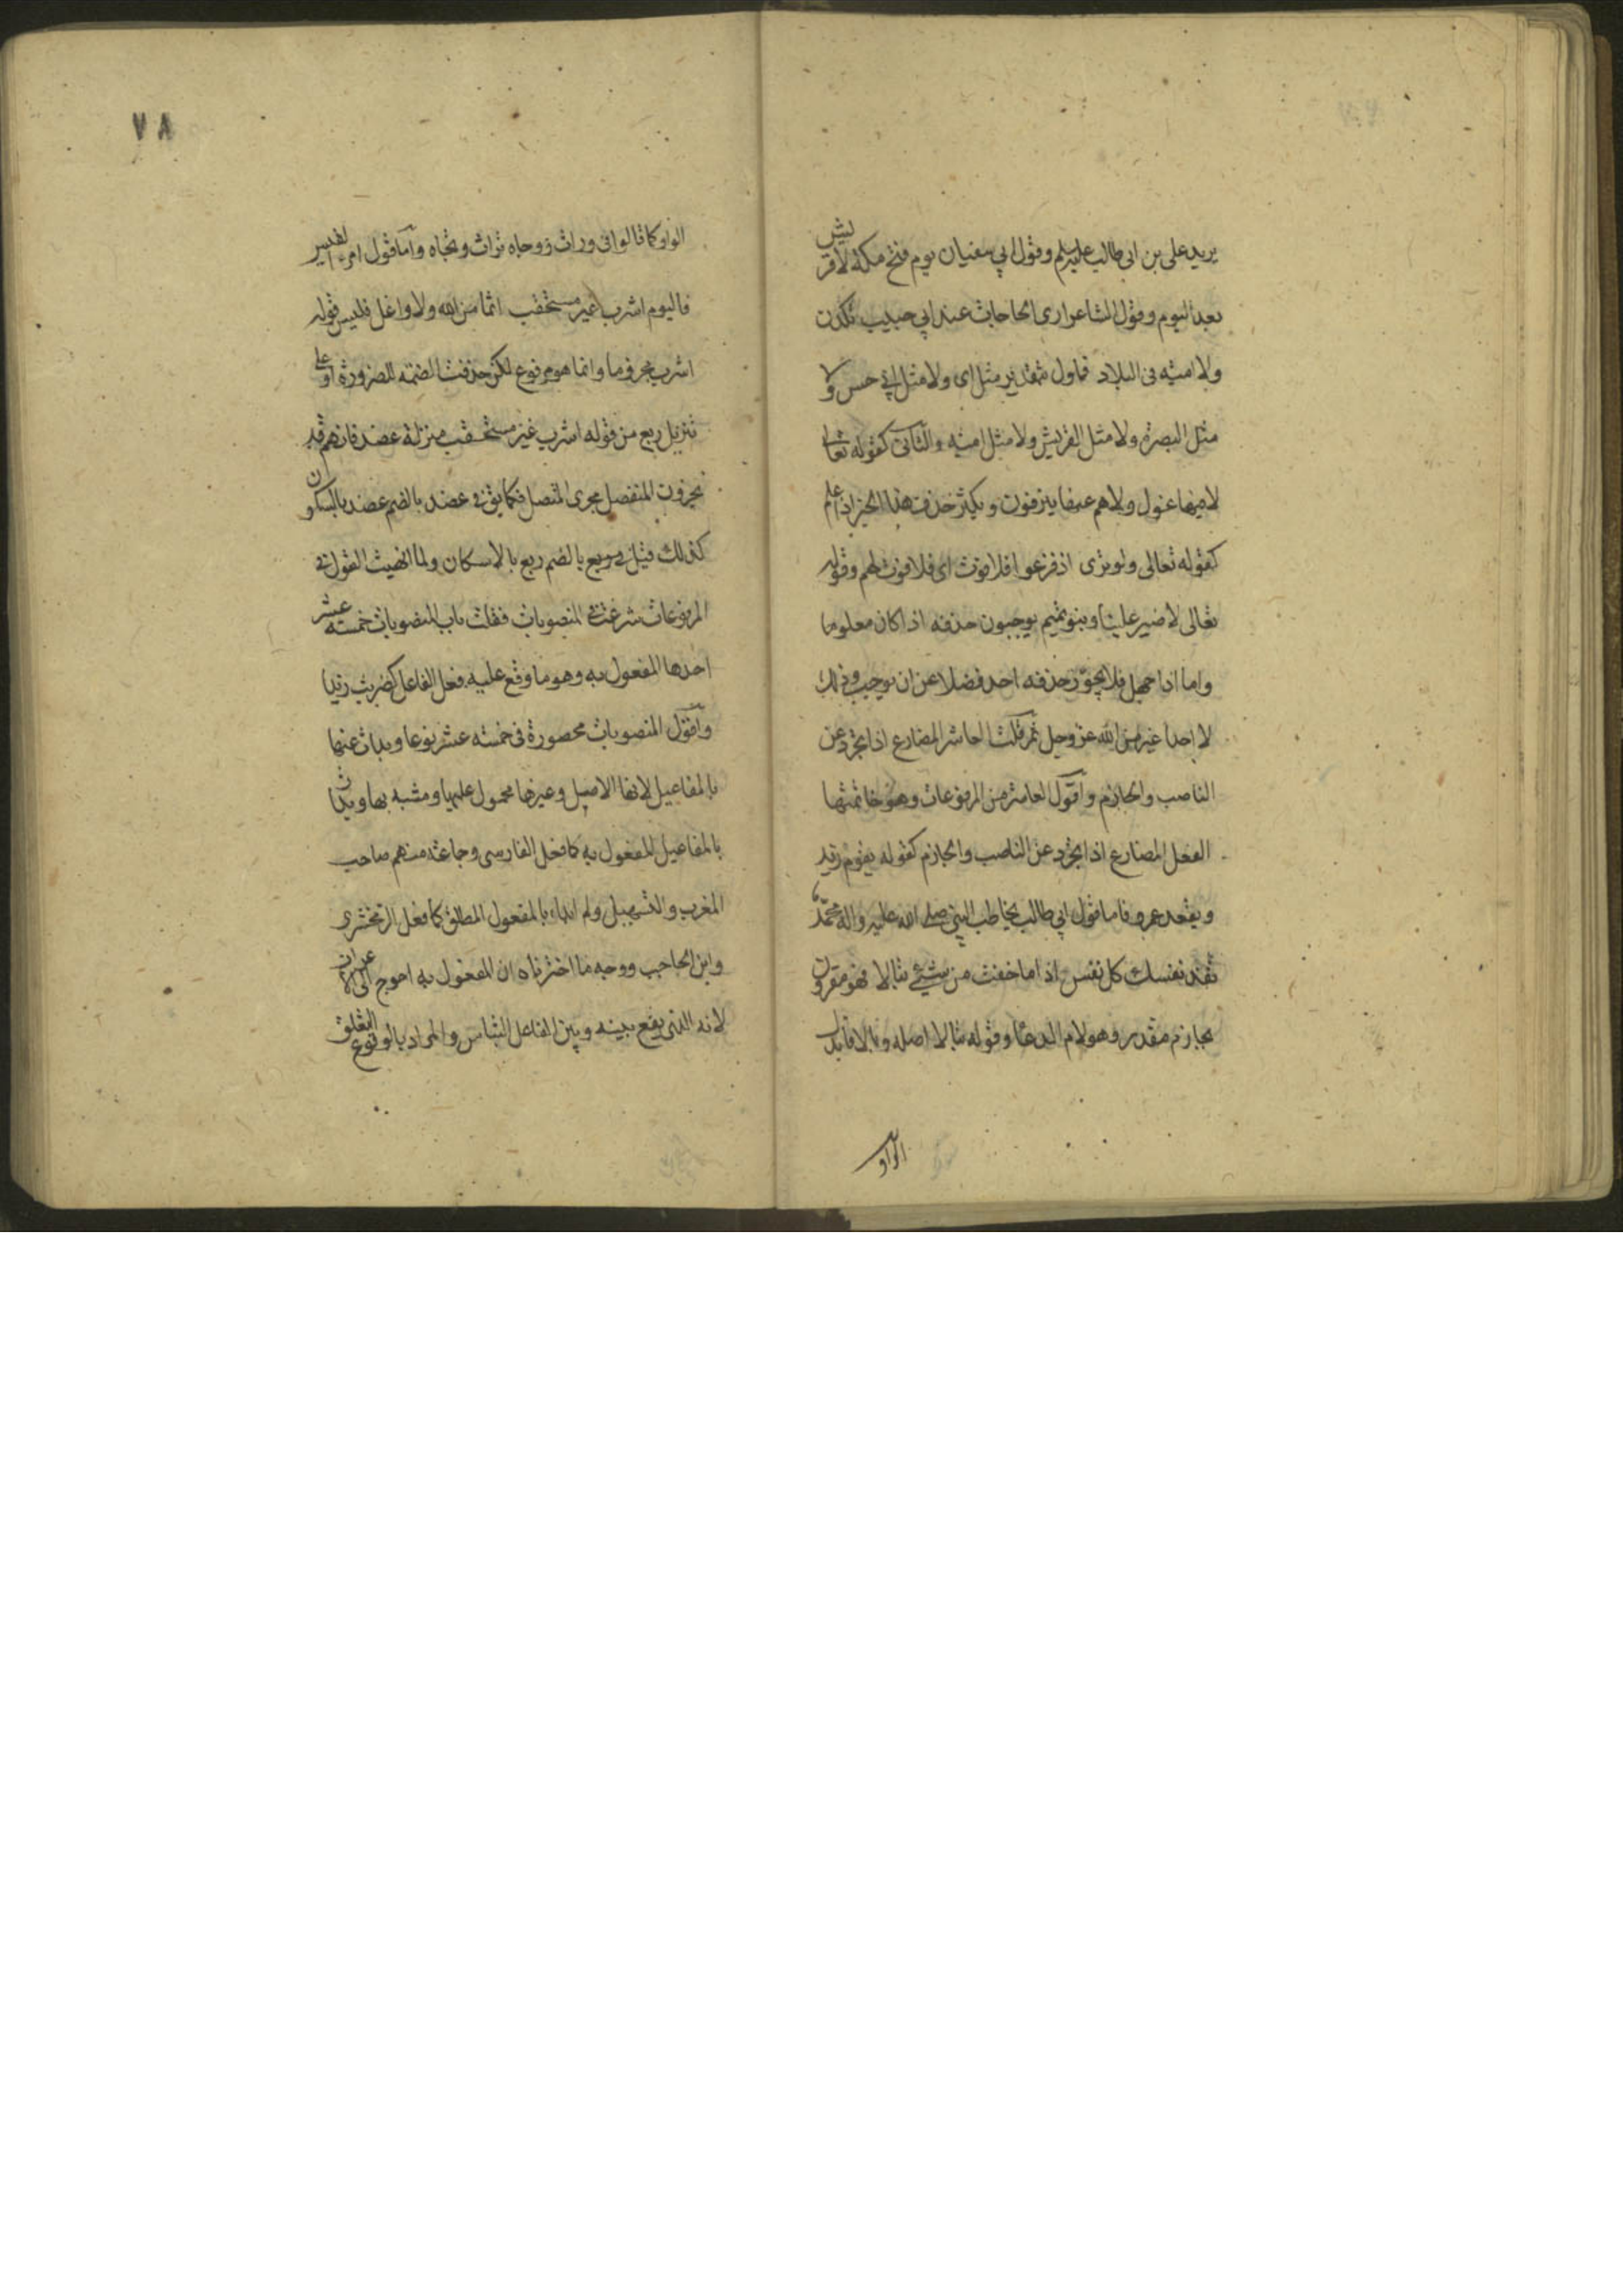 يريد علي بن ابي طالب عليه السلم وقول ابي سفيان يوم فتح مكة لا قريش
بعد اليوم وقول الشاعر ارى الحاجات عند ابي خبيب نكدن
ولا امية فى البلاد فاول بتقدير مثل اى ولا مثل ابي حسن ولا
مثل البصرة ولا مثل القريش ولا مثل امية والثانى كقوله تعالى
لا فيها غول ولا هم عنها ينزفون ويكثر حذف هذا الخبر اذا علم
كقوله تعالى ولو ترى اذ فزعوا فلا فوت اى فلا فوت لهم وقوله
تعالى لا ضير علينا وبنو تميم يوجبون حذفه اذا كان معلوما
واما اذا جهل فلا يجوز حذفه احد فضلا عن ان يوجب وذلك
لا احدا غير من الله عز وجل ثم قلت العاشر المضارع اذا تجرد عن
الناصب والجازم واقول العاشر من المرفوعات وهو خاتمتها
الفعل المضارع اذا تجرد عن الناصب والجازم كقوله يقوم زيد
ويقعد عمرو فاما قول ابي طالب يخاطب النبي صلى الله عليه واله محمد
تفد نفسك كل نفس اذا ما خفت من شيء تبالا فهو مقرون
بجازم مقدر وهو لام الدعا وقوله تبالا اصله وبالا فابدل
الواو
٧٨
الواو كما قالوا فى وراث ووجاه تراث وتجاه واما قول امرء القيس
فاليوم اشرب غير مستحقب اثما من الله ولا واغل فليس قوله
اشرب مجزوما وانما هو مرفوع لكن حذفت الضمة للضرورة او على
تنزيل ربغ من قوله اشرب غير مستحقب منزلة عضد فانهم قد
يجرون المنفصل مجرى المتصل فكما يق فى عضد بالضم عضد بالسكون
كذلك قيل فى ربغ بالضم ربغ بالاسكان ولما انهيت القول فى
المرفوعات شرعت فى المنصوبات فقلت باب المنصوبات خمسة عشر
احدها المفعول به وهو ما وقع عليه فعل الفاعل كضربت زيدا
واقول المنصوبات محصورة فى خمسة عشر نوعا وبدات منها
بالمفاعيل لانها الاصل وغيرها محمول عليها ومشبه بها وبدات
بالمفاعيل المفعول به كما فعل الفارسى وجماعة منهم صاحب
المغرب والتسهيل ولم ابداء بالمفعول المطلق كما فعل الزمخشرى
وابن الحاجب ووجه ما اخترناه ان المفعول به احوج الى الاعراب
لانه الذى يقع بينه وبين الفاعل التباس والمراد بالوقوع التعلق